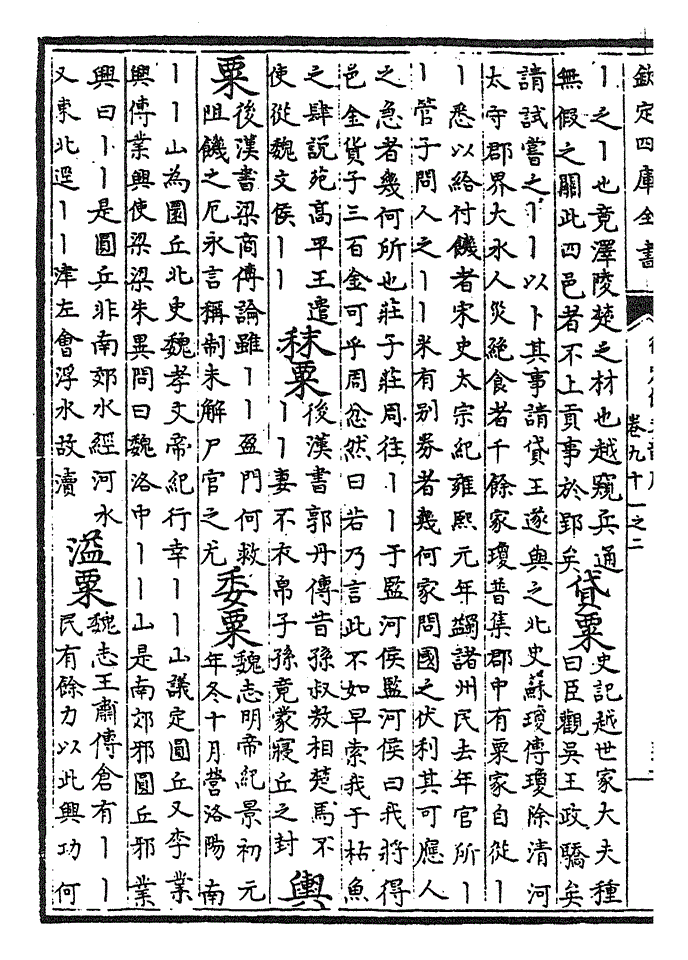 欽定四庫全書
卷九十一之二
丨之丨也竟澤陵楚之材也越窺兵通
無假之關此四邑者不上貢事於郢矣
貸粟
史記越世家大夫種
曰臣觀吳王政驕矣
請試嘗之丨丨以卜其事請貸王遂與之北史蘇瓊傳瓊除清河
太守郡界大水人災絕食者千餘家瓊普集郡中有粟家自從丨
丨悉以給付饑者宋史太宗紀雍熙元年蠲諸州民去年官所丨
丨管子問人之丨丨米有別券者幾何家問國之伏利其可應人
之急者幾何所也莊子莊周往丨丨于監河侯監河侯曰我將得
邑金貨子三百金可乎周忿然曰若乃言此不如早索我于枯魚
之肆說苑高平王遣
使從魏文侯丨丨
秣粟
後漢書郭丹傳昔孫叔敖相楚馬不
丨丨妻不衣帛子孫竟蒙寢丘之封
輿
粟
後漢書梁商傳論雖丨丨盈門何救
阻饑之厄永言稱制未解尸官之尤
委粟
魏志明帝紀景初元
年冬十月營洛陽南
丨丨山為圜丘北史魏孝文帝紀行幸丨丨山議定圓丘又李業
興傳業興使梁梁朱异問曰魏洛中丨丨山是南郊邪圓丘邪業
興曰丨丨是圓丘非南郊水經河水
又東北逕丨丨津左會浮水故瀆
溢粟
魏志王肅傳倉有丨丨
民有餘力以此興功何